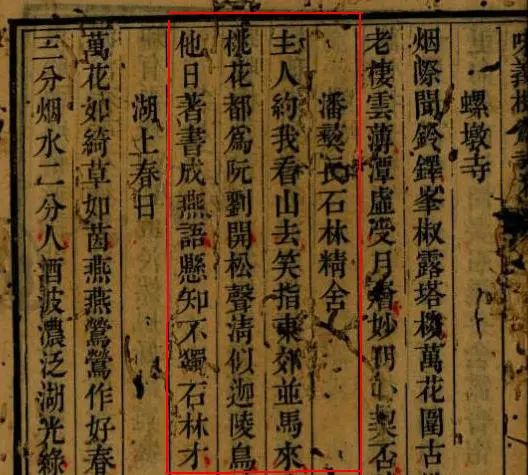 螺墩寺
烟際聞鈴鐸峯椒露塔萬花圍古
老棲雲薄潭虛受月妙明心契否
潘氏石林精舍
主人約我看山去笑指東郊並馬來
桃花都爲阮劉開松聲清似迦陵鳥
他日著書成燕語懸知不獨石林才
湖上春日
萬花如綺草如茵燕燕鶯鶯作好春
三分烟水二分人酒波濃泛湖光綠